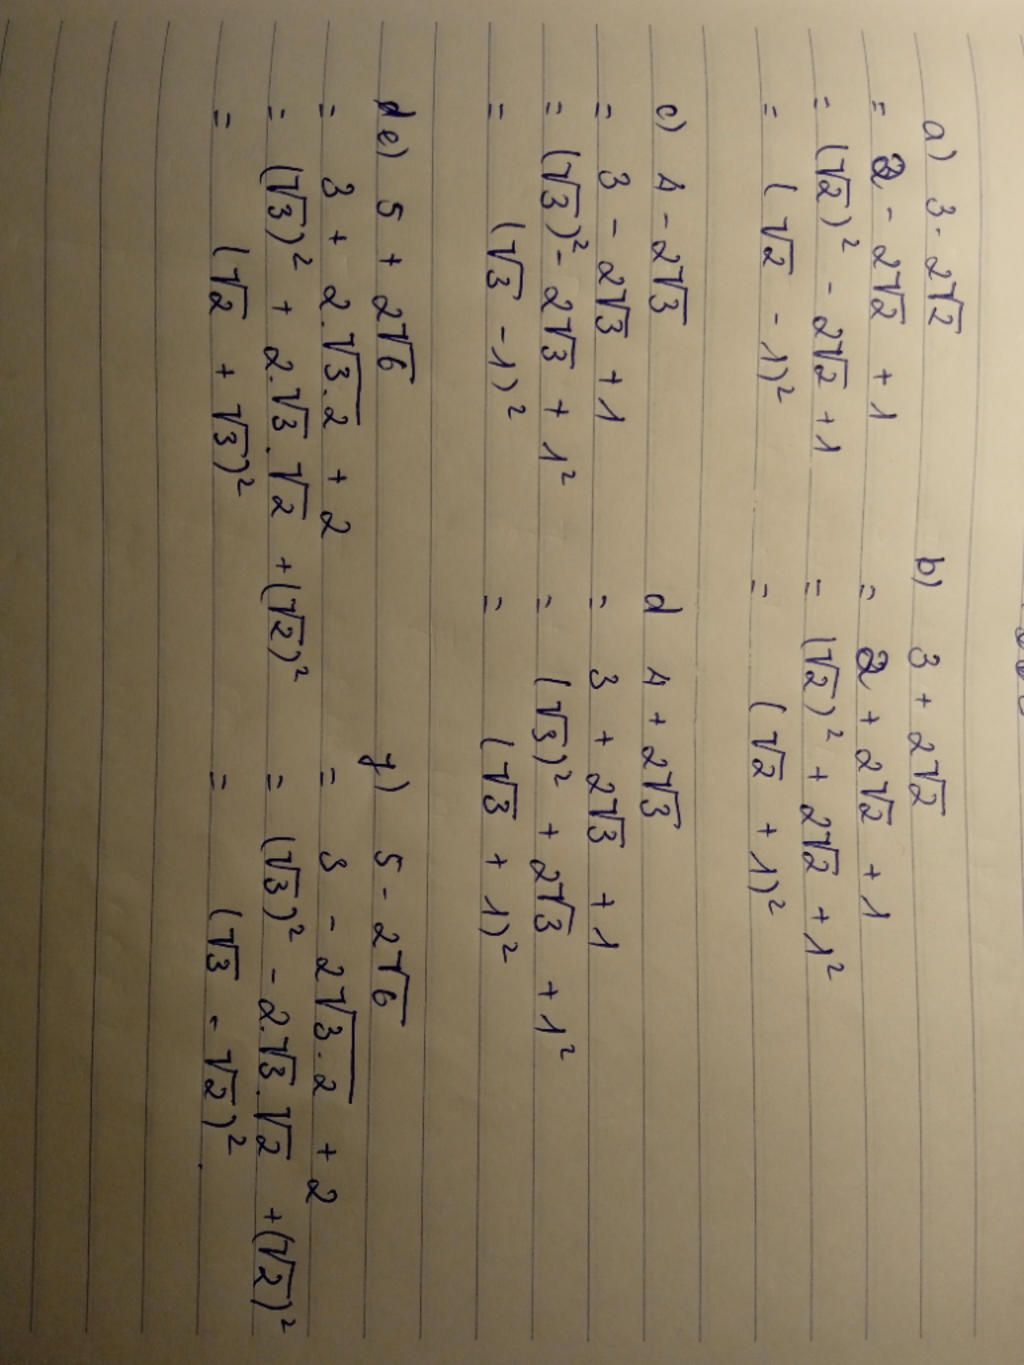 a) 3 - 2√2
= 2 - 2√2 + 1
= (√2)² - 2√2 + 1
= (√2 - 1)²
b) 3 + 2√2
= 2 + 2√2 + 1
= (√2)² + 2√2 + 1²
= (√2 + 1)²
c) 4 - 2√3
= 3 - 2√3 + 1
= (√3)² - 2√3 + 1²
= (√3 - 1)²
d 4 + 2√3
= 3 + 2√3 + 1
= (√3)² + 2√3 + 1²
= (√3 + 1)²
e) 5 + 2√6
= 3 + 2.√3.2 + 2
= (√3)² + 2.√3.√2 + (√2)²
= (√2 + √3)²
y) 5 - 2√6
= 3 - 2√3.2 + 2
= (√3)² - 2.√3.√2 + (√2)²
= (√3 - √2)²